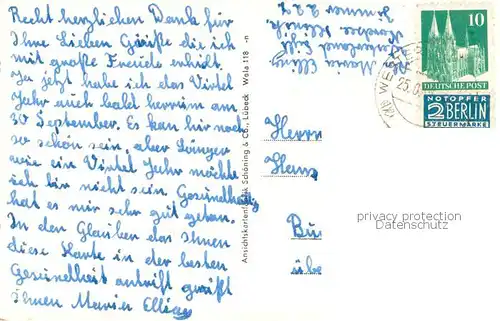 Recht herzlichen Dank für
Ihre Lieben Grüße die ich
mit große Freude erhilt.
Ja jetzt habe ich das Virtel
Jahr auch bald herrum am
30 September. Es kan hir noch
so schön sein, aber Länger
wie ein Virtel Jahr möchte
ich hir nicht sein Gesundheitlig
hat es mir sehr gut getan.
In den Glauben das Ihnen
diese Karte in der besten
Gesundheit antrift grüßt
Ihnen Maria Elling
Ansichtskartenfabrik Schöning & Co., Lübeck Wola 118 -n
Maria Elling
Zimmer
WESTER
25.
10
DEUTSCHE POST
NOTOPFER
2 BERLIN
STEUERMARKE
Herrn
Hans
Bü
übe
privacy protection
Datenschutz